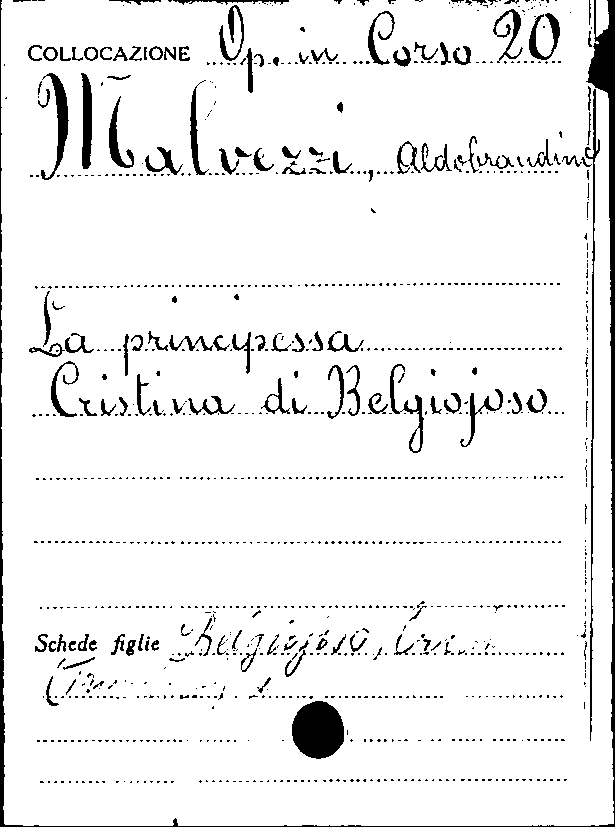 COLLOCAZIONE Op. in Corso 20
Malvezzi, Aldobrandino
La principessa
Cristina di Belgiojoso
Schede figlie Belgiojoso,